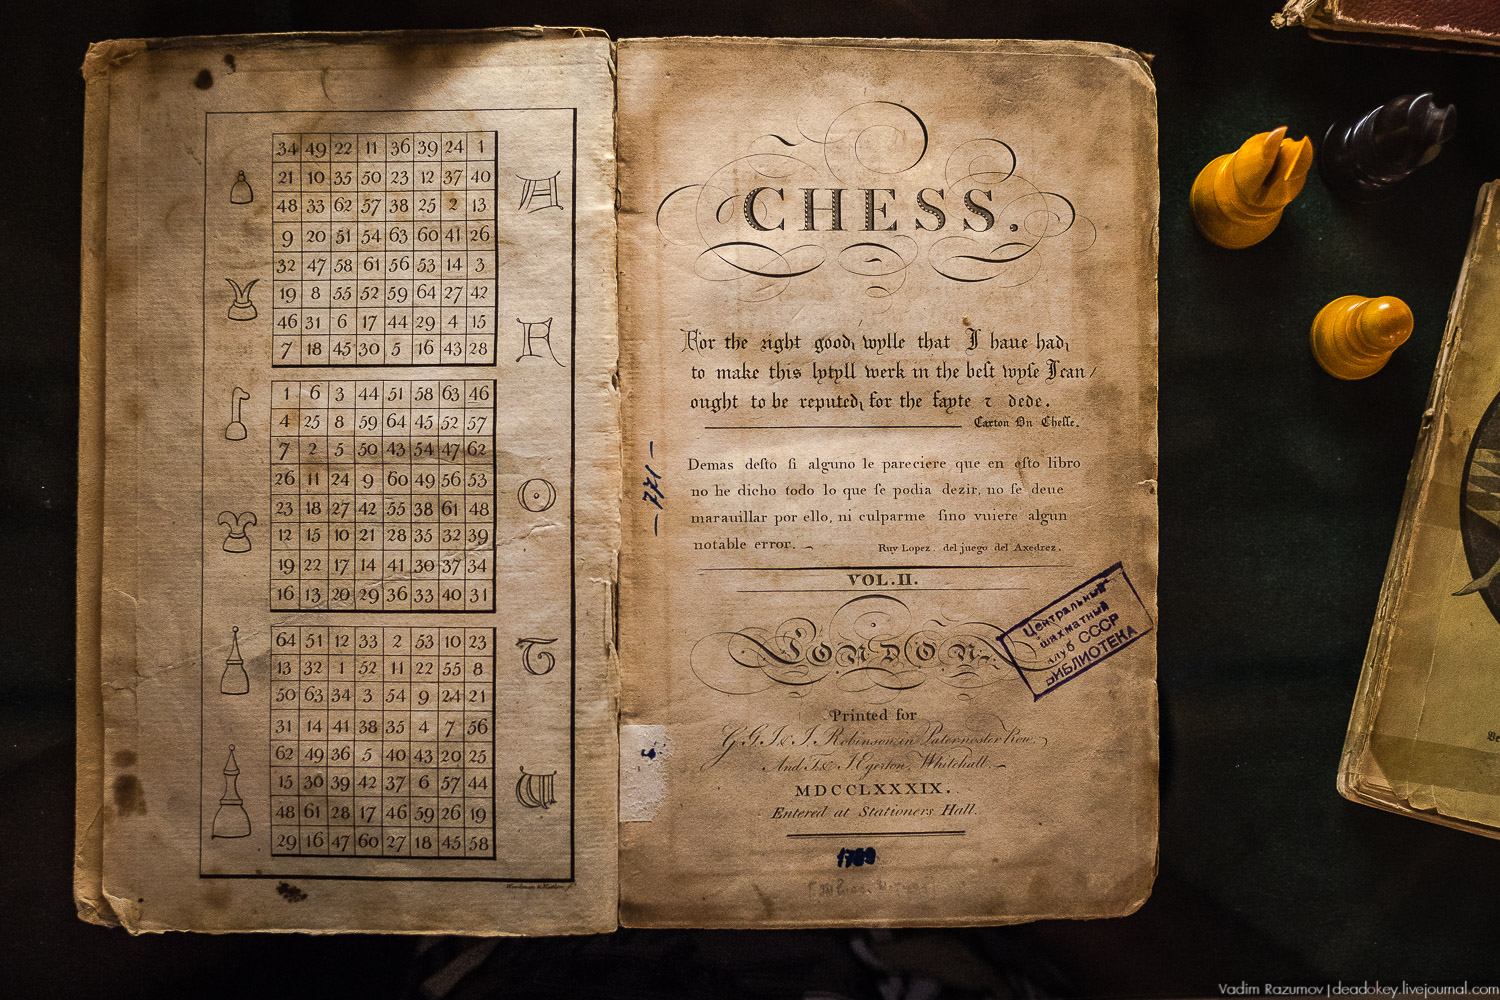 34 49 22 11 36 39 24 1
21 10 35 50 23 12 37 40
48 33 62 57 38 25 2 13
9 20 51 54 63 60 41 26
32 47 58 61 56 53 14 3
19 8 55 52 59 64 27 42
46 31 6 17 44 29 4 15
7 18 45 30 5 16 43 28
1 6 3 44 51 58 63 46
4 25 8 59 64 45 52 57
7 2 5 50 43 54 47 62
26 11 24 9 60 49 56 53
23 18 27 42 55 38 61 48
12 15 10 21 28 35 32 39
19 22 17 14 41 30 37 34
16 13 20 29 36 33 40 31
64 51 12 33 2 53 10 23
13 32 1 52 11 22 55 8
50 63 34 3 54 9 24 21
31 14 41 38 35 4 7 56
62 49 36 5 40 43 20 25
15 30 39 42 37 6 57 44
48 61 28 17 46 59 26 19
29 16 47 60 27 18 45 58
CHESS.
For the right good, wylle that I haue had,
to make this lytyll werk in the best wyse I can/
ought to be reputed, for the fayte ⁊ dede.
Caxton On Chesse.
Demas desto si alguno le pareciere que en esto libro
no he dicho todo lo que se podia dezir, no se deue
marauillar por ello, ni culparme sino vuiere algun
notable error.
Ruy Lopez. del juego del Axedrez.
- 771 -
VOL. II.
London.
Центральный
шахматный
клуб СССР
БИБЛИОТЕКА
Printed for
G.G.I.& J. Robinson, in Paternoster Row.
And T.& J. Egerton, Whitehall.
MDCCLXXXIX.
Entered at Stationers Hall.
1789
Vadim Razumov | deadokey.livejournal.com